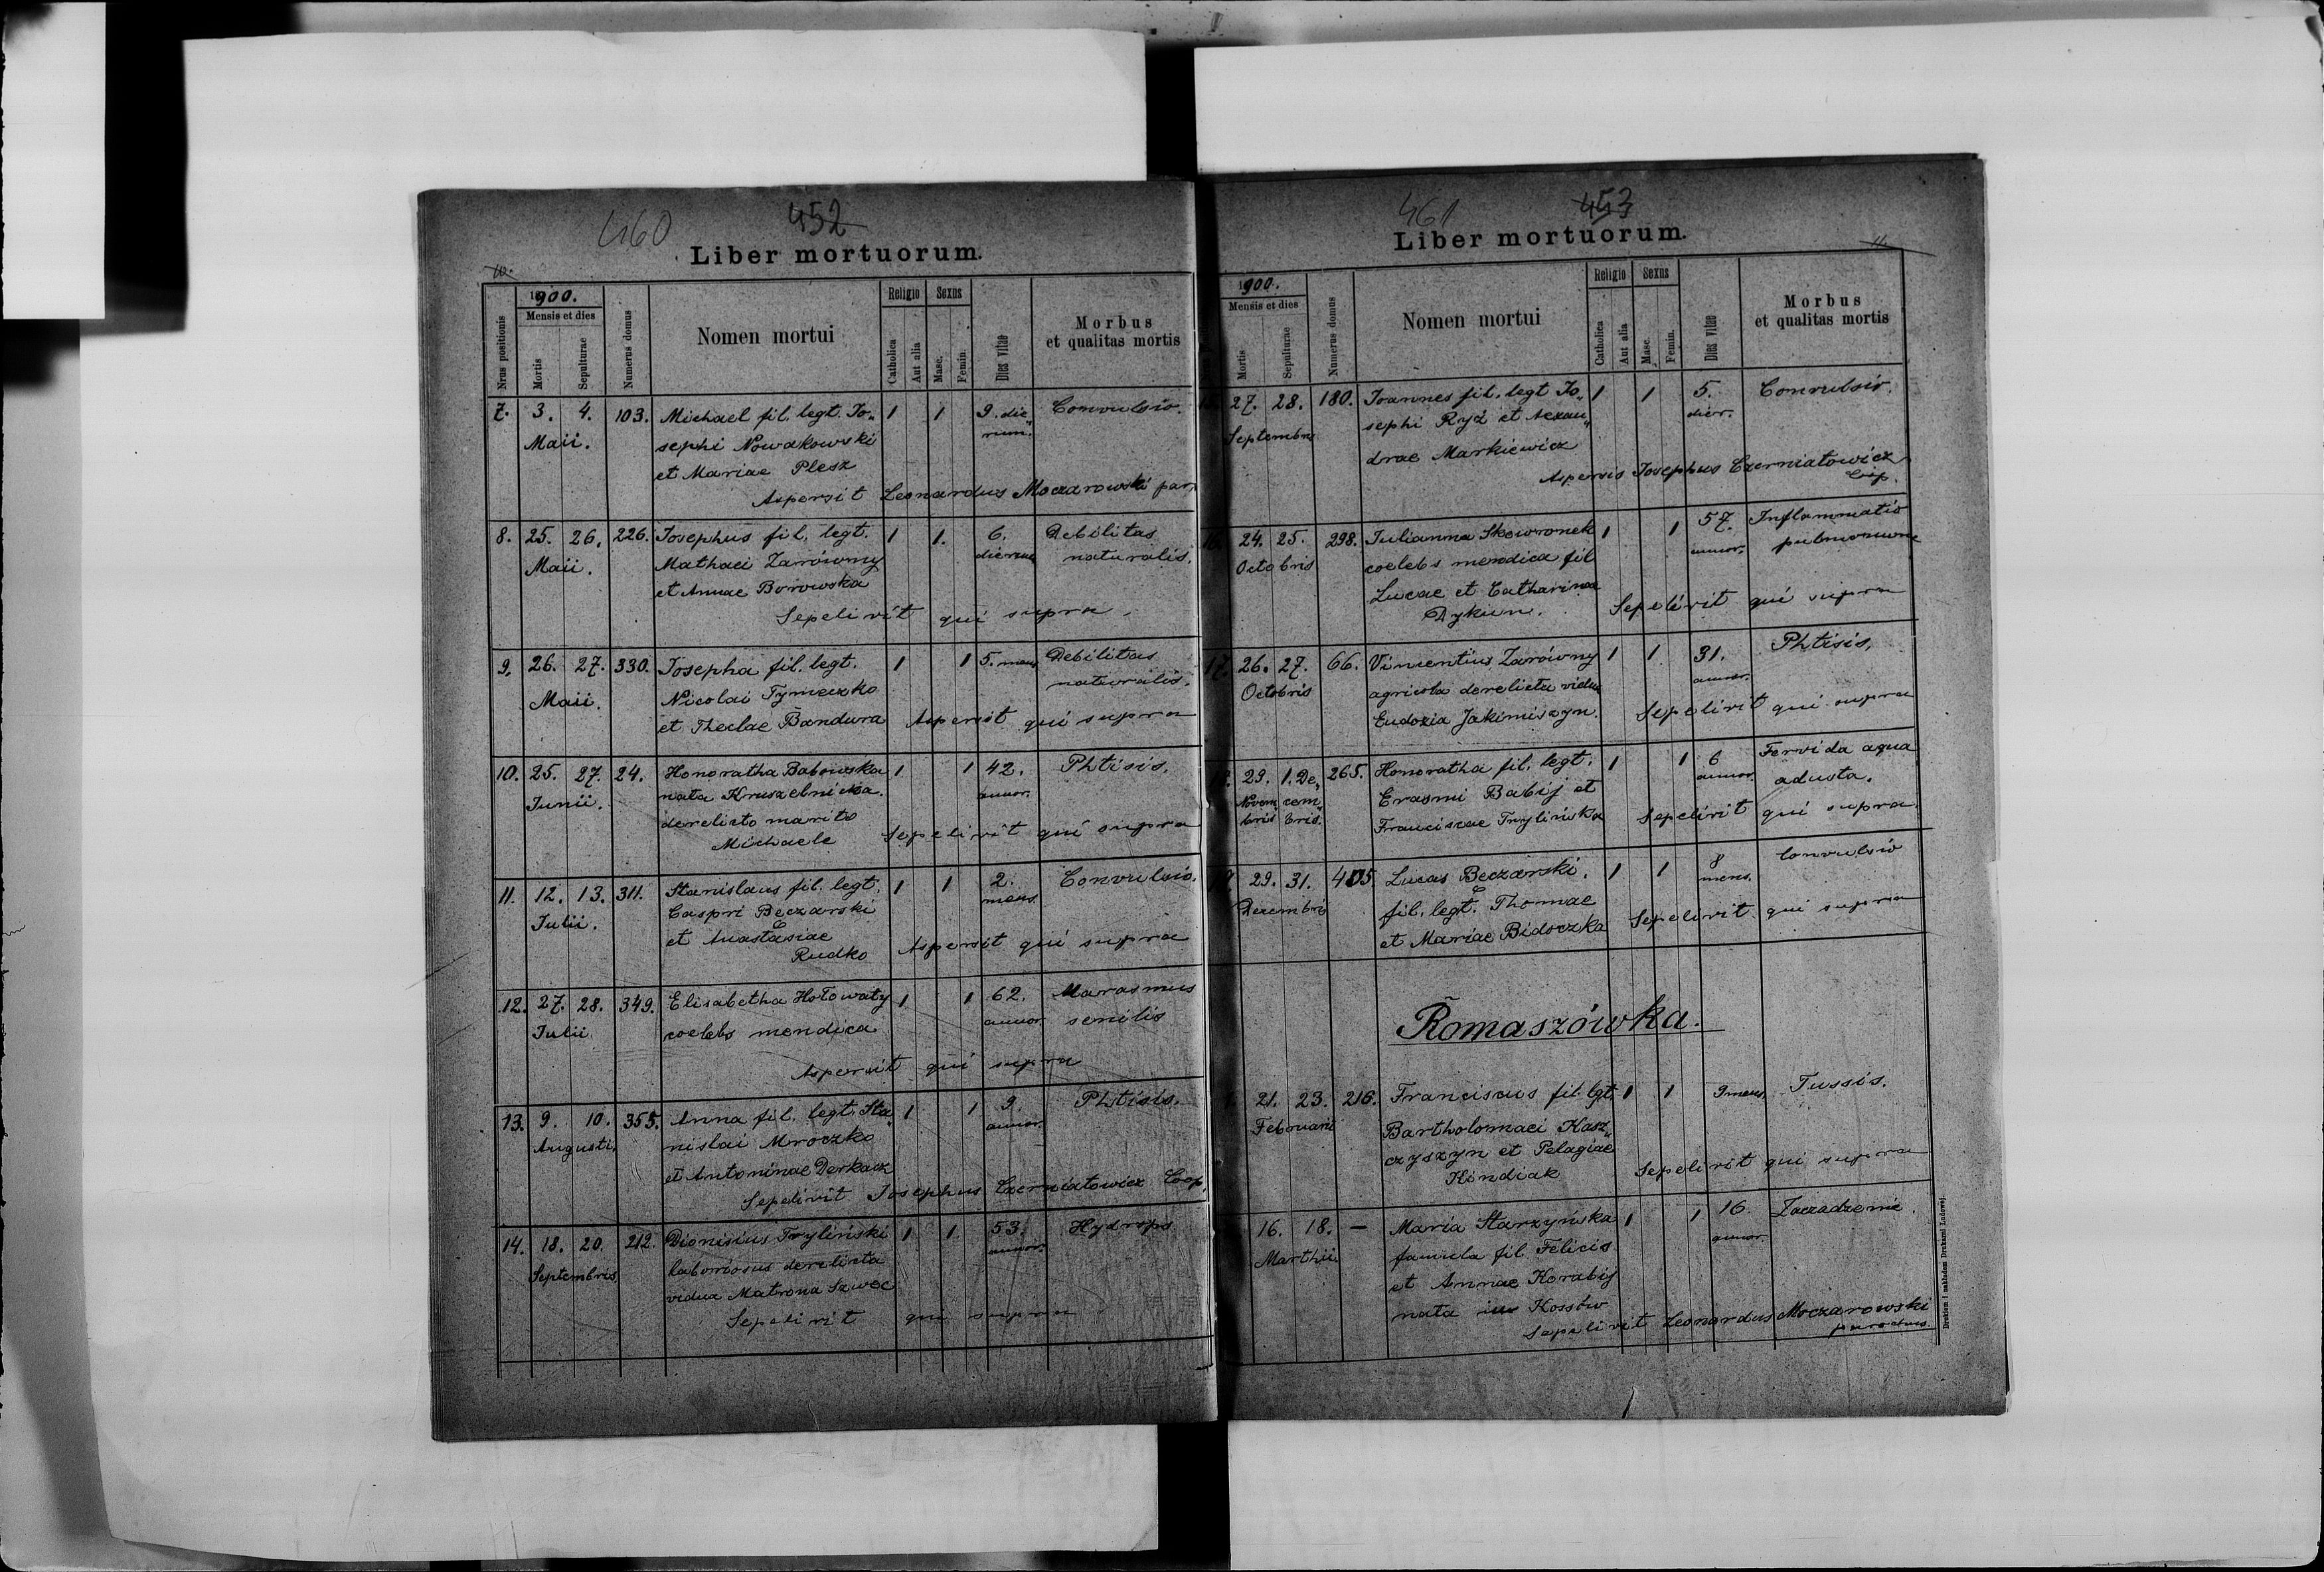 460 452
Liber mortuorum.
10.
1900.
Mensis et dies
Nrus positionis
Mortis
Sepulturae
Numerus domus
Nomen mortui
Religio
Catholica
Aut alia
Sexus
Masc.
Femin.
Dies vitae
Morbus
et qualitas mortis
7. 3. 4. 103. Michael fil. legt. Jo„ 1 1 9. die„ Convulsio.
Maii. sephi Nowakowski rum.
et Mariae Plesz
Aspersit Leonardus Moczarowski par.
8. 25. 26. 226. Josephus fil. legt. 1 1. 6. Debilitas
Maii. Mathaei Zarówny dierum naturalis.
et Annae Borowska
Sepelivit qui supra.
9. 26. 27. 330. Josepha fil. legt. 1 1 5. mens Debilitas
Maii. Nicolai Tymeczko naturalis.
et Theclae Bandura Aspersit qui supra
10. 25. 27. 24. Honoratha Babowska 1 1 42. Phtisis.
Junii. nata Kruszelnicka. annor.
derelicto marito
Michaele Sepelivit qui supra
11. 12. 13. 311. Stanislaus fil. legt. 1 1 2. Convulsio.
Julii. Caspri Beczarski mens.
et Anastasiae
Rudko Aspersit qui supra
12. 27. 28. 349. Elisabetha Hołowaty 1 1 62. Marasmus
Julii. coelebs mendica annor. senilis
Aspersit qui supra
13. 9. 10. 355. Anna fil. legt. Sta„ 1 1 9. Phtisis.
Augusti. nislai Mroczko annor.
et Antoninae Derkacz
Sepelivit Josephus Czerniatowicz Coop.
14. 18. 20. 212. Dionisius Tryliński 1 1 53. Hydrops.
Septembris laboriosus derelicta annor.
vidua Matrona Szwec
Sepelivit qui supra
461 453
Liber mortuorum.
11.
1900.
Mensis et dies
Mortis
Sepulturae
Numerus domus
Nomen mortui
Religio
Catholica
Aut alia
Sexus
Masc.
Femin.
Dies vitae
Morbus
et qualitas mortis
15. 27. 28. 180. Joannes fil. legt Jo„ 1 1 5. Convulsio.
Septembris sephi Ryż et Aexan„ dier.
drae Markiewicz
Aspersis Josephus Czerniatowicz
Coop.
16. 24. 25. 298. Julianna Skowronek 1 1 57. Inflammatio
Octobris coelebs mendica fil annor. pulmonum
Lucae et Catharinae
Dykun. Sepelivit qui supra
17. 26. 27. 66. Vincentius Zarówny 1 1 31. Phtisis.
Octobris agricola derelicta vidua annor.
Eudoxia Jakimiszyn. Sepelivit qui supra
29. 1. De„ 265. Honoratha fil. legt. 1 1 6 Fervida aqua
Novem„ cem„ Erasmi Babij et annor. adusta.
bris bris. Franciscae Trylińska Sepelivit qui supra.
29. 31. 405. Lucas Beczarski. 1 1 8 Convulsio
Dezembris fil. legt. Thomae mens.
et Mariae Bidoczka Sepelivit qui supra
Romaszówka.
21. 23. 216. Franciscus fil. lgt. 1 1 9 mens. Tussis.
Februarii Bartholomaei Kasz„
czyszyn et Pelagiae
Kindiak Sepelivit qui supra
16. 18. — Maria Starzyńska 1 1 16. Zaczadzenie.
Marthii famula fil. Felicis annor.
et Annae Korabij
nata in Kossów
Sepelivit Leonardus Moczarowski
parochus.
Drukiem i nakładem Drukarni Ludowej.